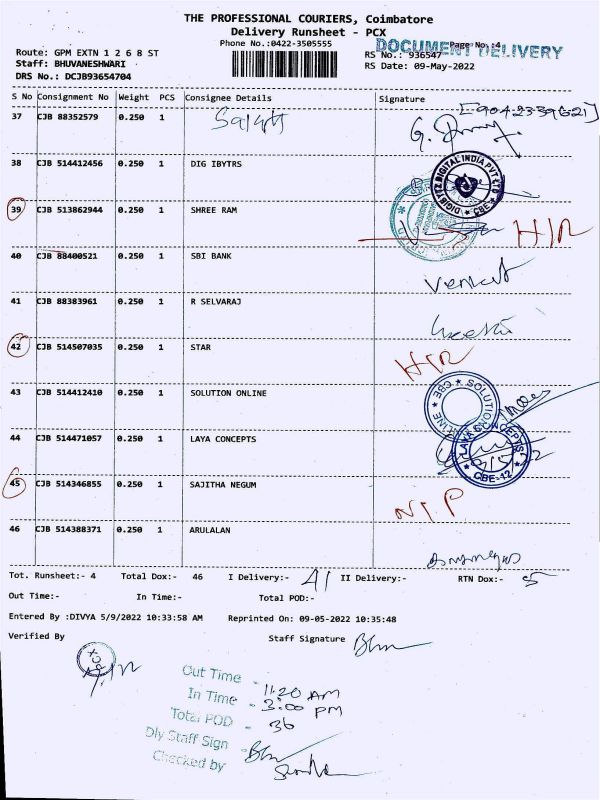 THE PROFESSIONAL COURIERS, Coimbatore
Delivery Runsheet - PCX
Phone No.:0422-3505555
DOCUMENT DELIVERY
Page No.:4
Route: GPM EXTN 1 2 6 8 ST
RS No.: 936547
Staff: BHUVANESHWARI
RS Date: 09-May-2022
DRS No.: DCJB93654704
S No Consignment No Weight PCS Consignee Details Signature
37 CJB 88352579 0.250 1
38 CJB 514412456 0.250 1 DIG IBYTRS
DIGISTIZ DIGITAL INDIA PVT LTD CBE
39 CJB 513862944 0.250 1 SHREE RAM H/R
40 CJB 88400521 0.250 1 SBI BANK
Venkat
41 CJB 88383961 0.250 1 R SELVARAJ
42 CJB 514507035 0.250 1 STAR H/R
43 CJB 514412410 0.250 1 SOLUTION ONLINE
44 CJB 514471057 0.250 1 LAYA CONCEPTS
CBE-12
45 CJB 514346855 0.250 1 SAJITHA NEGUM N.T.P
46 CJB 514388371 0.250 1 ARULALAN
Tot. Runsheet:- 4 Total Dox:- 46 I Delivery:- 41 II Delivery:- RTN Dox:- 5
Out Time:- In Time:- Total POD:-
Entered By :DIVYA 5/9/2022 10:33:58 AM Reprinted On: 09-05-2022 10:35:48
Verified By Staff Signature
Out Time - 11:20 AM
In Time - 3:00 PM
Total POD - 36
Dly Staff Sign -
Checked by